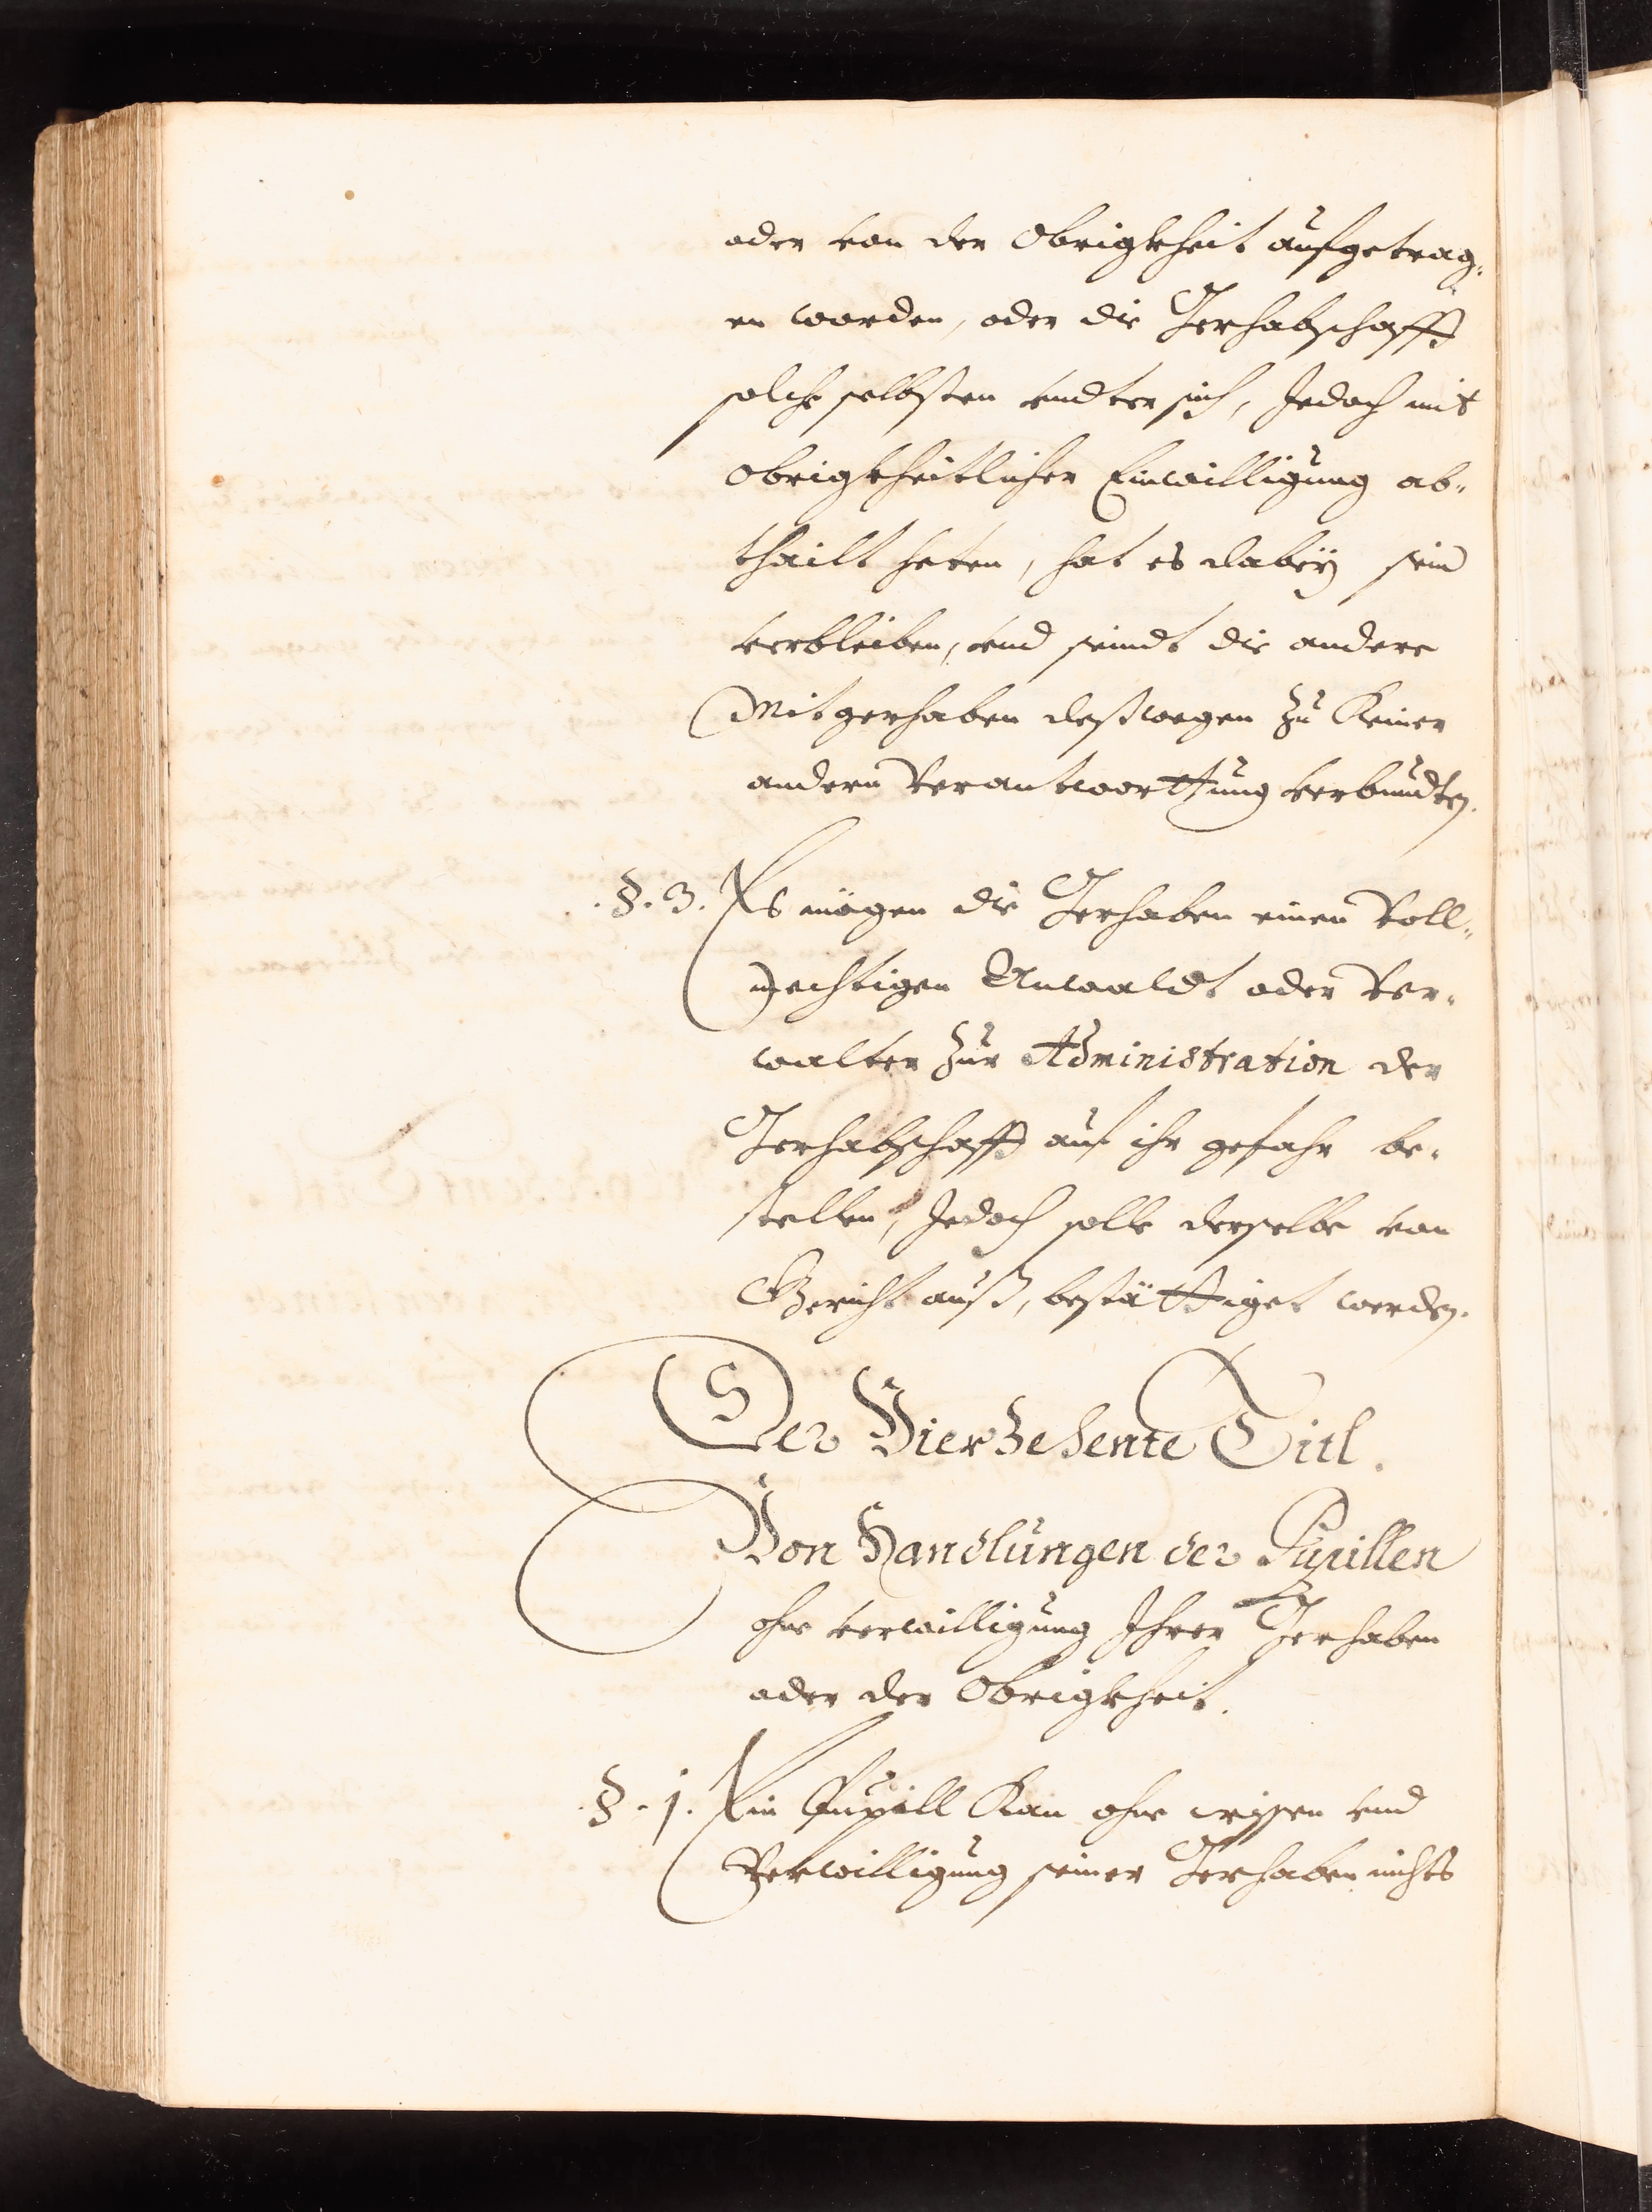 oder von der Obrigkheit aufgetrag„
en worden, oder die Gerhabschafft
solche selbsten vndter sich, Jedoch mit
Obrigkheitlicher Einwilligung ab„
thailt heten, hat es dabeÿ sein
verbleiben, vnd seindt die andere
Mitgerhaben deßwegen zu Keiner
andern Verantworttung verbundten.
.§. 3. Es mögen die Gerhaben einen Voll„
mechtigen Anwaldt oder Ver„
walter zur Administration der
Gerhabschafft auf ihr gefahr be„
stellen, Jedoch solle derselbe von
Gericht auß, bestättiget werden.
Der Vierzehente Titl.
Von Handlungen der Pupillen
ohne verwilligung Ihrer Gerhaben
oder der Obrigkheit.
.§. 1. Ein Pupill Kan ohne wissen vnd
Verwilligung seiner Gerhaben nichts